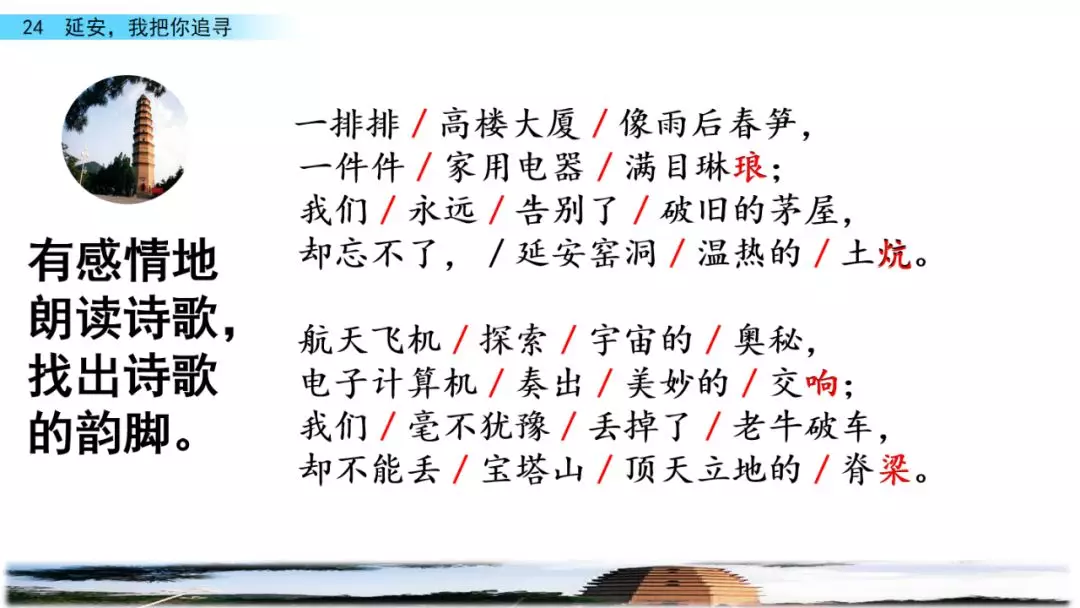 24 延安，我把你追寻
有感情地
朗读诗歌，
找出诗歌
的韵脚。
一排排/高楼大厦/像雨后春笋，
一件件/家用电器/满目琳琅；
我们/永远/告别了/破旧的茅屋，
却忘不了，/延安窑洞/温热的/土炕。
航天飞机/探索/宇宙的/奥秘，
电子计算机/奏出/美妙的/交响；
我们/毫不犹豫/丢掉了/老牛破车，
却不能丢/宝塔山/顶天立地的/脊梁。